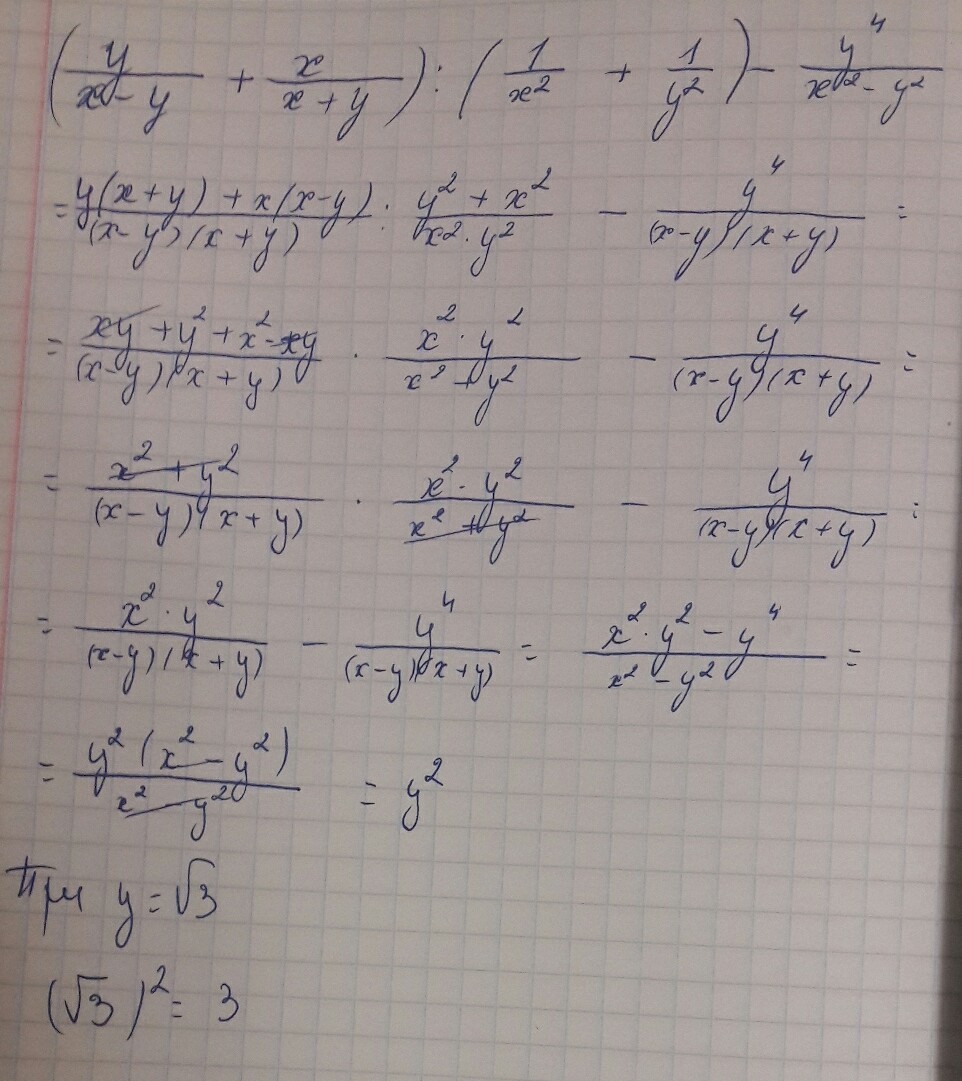 (y/(x-y) + x/(x+y)) : (1/x² + 1/y²) - y⁴/(x²-y²)
= (y(x+y) + x(x-y))/((x-y)(x+y)) : (y²+x²)/(x²·y²) - y⁴/((x-y)(x+y)) =
= (xy+y²+x²-xy)/((x-y)(x+y)) · (x²·y²)/(x²+y²) - y⁴/((x-y)(x+y)) =
= (x²+y²)/((x-y)(x+y)) · (x²·y²)/(x²+y²) - y⁴/((x-y)(x+y)) =
= (x²·y²)/((x-y)(x+y)) - y⁴/((x-y)(x+y)) = (x²·y²-y⁴)/(x²-y²) =
= (y²(x²-y²))/(x²-y²) = y²
При y=√3
(√3)² = 3